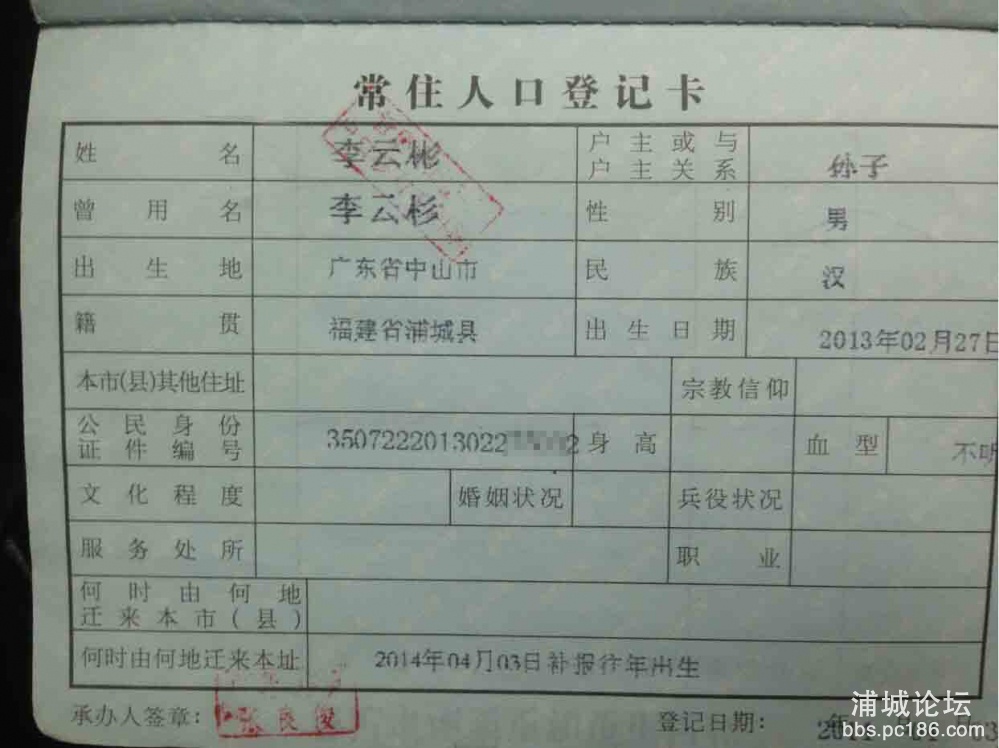 常住人口登记卡
姓名 李云彬 户主或与户主关系 孙子
曾用名 李云杉 性别 男
出生地 广东省中山市 民族 汉
籍贯 福建省浦城县 出生日期 2013年02月27日
本市(县)其他住址 宗教信仰
公民身份证件编号 3507222013022 2 身高 血型 不明
文化程度 婚姻状况 兵役状况
服务处所 职业
何时由何地迁来本市(县)
何时由何地迁来本址 2014年04月03日补报往年出生
承办人签章: 张良俊 登记日期:
浦城论坛
bbs.pc186.com